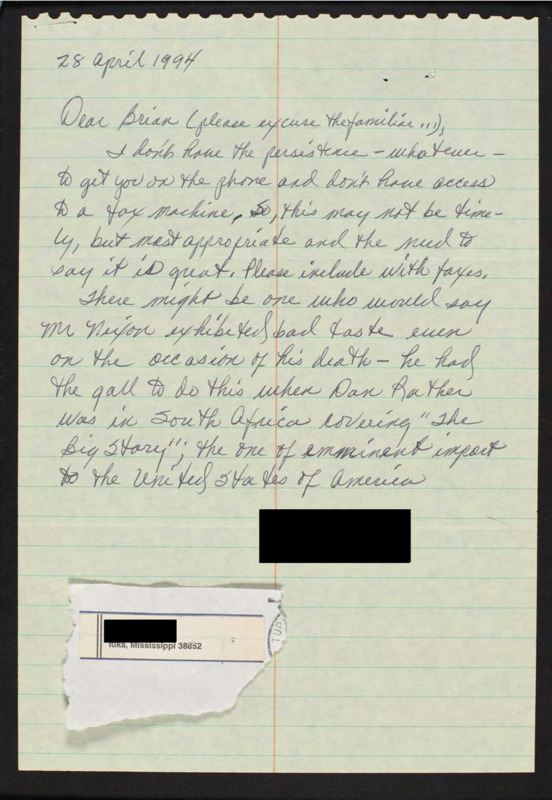 28 April 1994
Dear Brian (please excuse the familiar...),
I don't have the persistence - whatever -
to get you on the phone and don't have access
to a fax machine. So, this may not be time-
ly, but most appropriate and the need to
say it is great. Please include with faxes.
There might be one who would say
Mr Nixon exhibited bad taste even
on the occasion of his death - he had
the gall to do this when Dan Rather
was in South Africa covering "The
Big Story"; the one of emminent import
to the United States of America
Iuka, Mississippi 38852
TUP